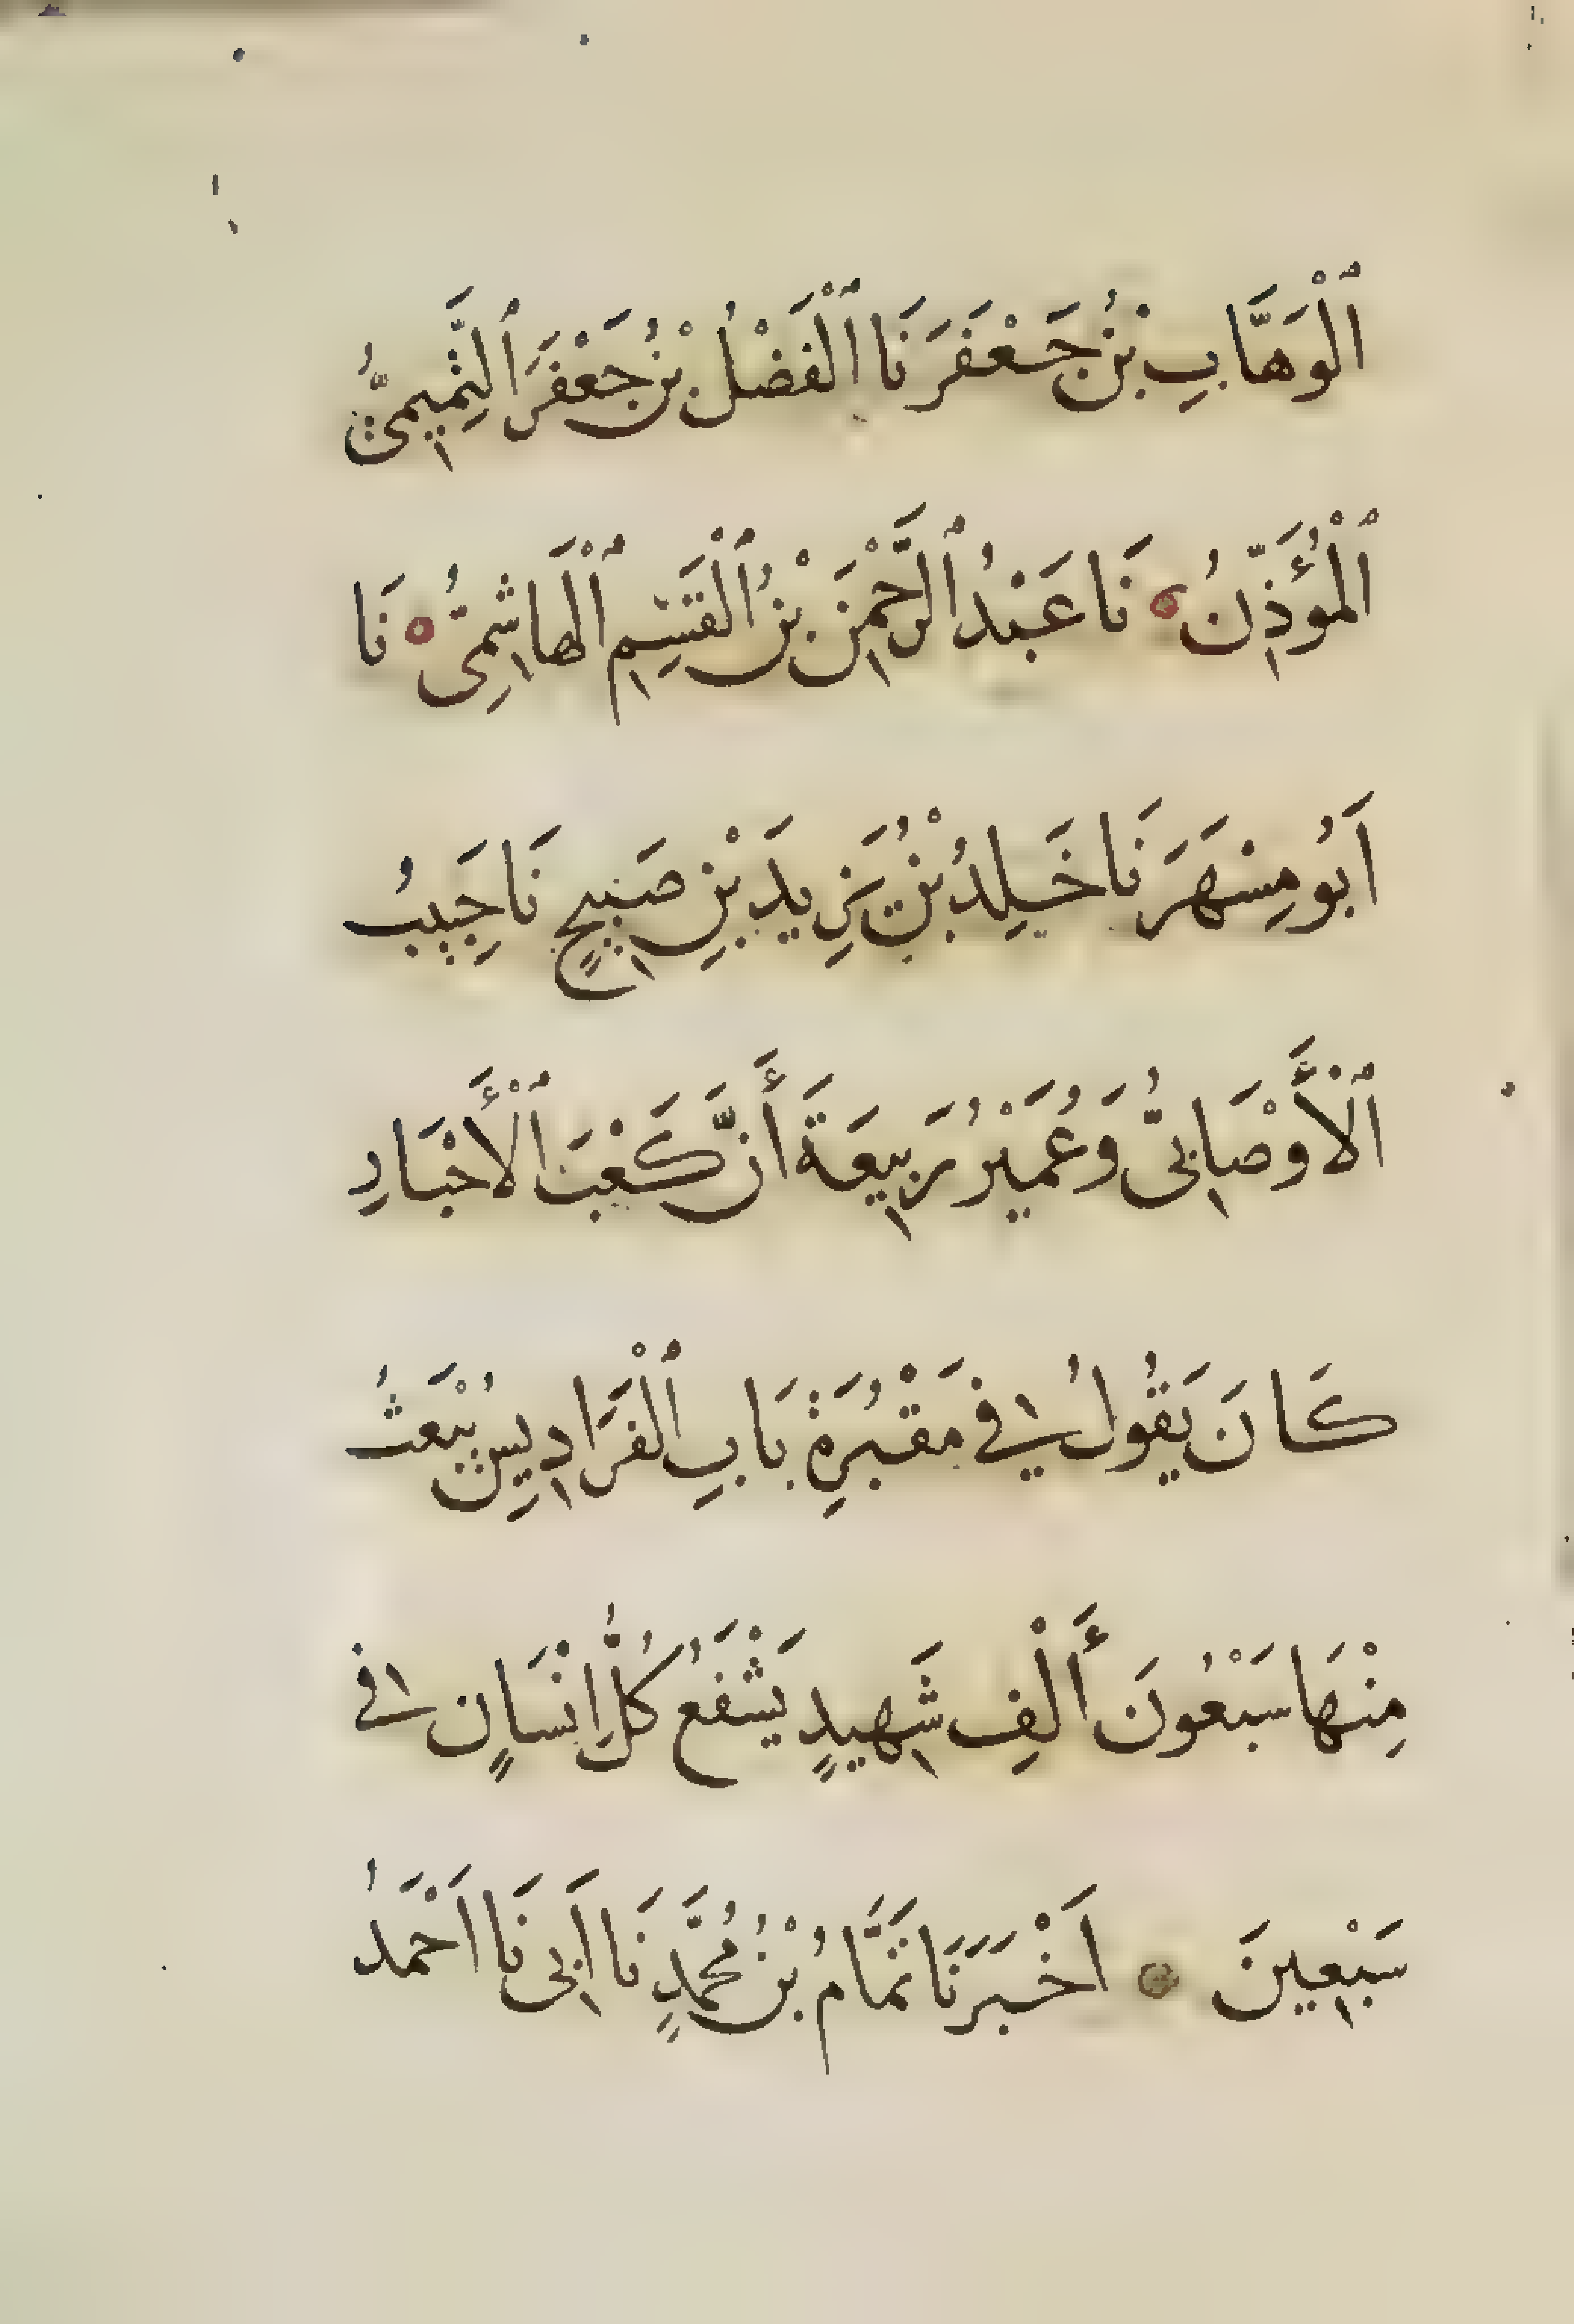 ٱلْوَهَّابِ بْنُ جَعْفَرَ نَا ٱلْفَضْلُ بْنُ جَعْفَرَ ٱلتَّمِيمِيُّ
ٱلْمُؤَذِّنُ ه نَا عَبْدُ ٱلرَّحْمٰنِ بْنُ ٱلْقٰسِمِ ٱلْهَاشِمِىُّ ه نَا
اَبُو مِسْهَرَ نَا خَلِدُ بْنُ يَزِيدَ بْنِ صَبِيحٍ نَا حَبِيبُ
ٱلْأَوْصَابِىُّ وَعُمَيْرُ رَبِيعَةَ أَنَّ كَعْبَ ٱلْأَحْبَارِ
كَانَ يَقُولُ فِي مَقْبُرَةِ بَابِ ٱلْفَرَادِيسِ يُبْعَثُ
مِنْهَا سَبْعُونَ أَلْفِ شَهِيدٍ يَشْفَعُ كُلُّ اِنْسَانٍ فِي
سَبْعِينَ ه اَخْبَرَنَا تَمَّامُ بْنُ مُحَمَّدٍ نَا اَبِى نَا اَحْمَدُ